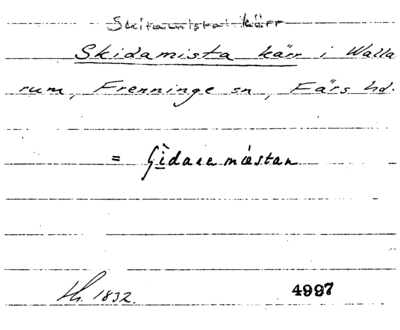 Skitamistra kärr
Skidamista kärr i Walla
rum, Frenninge sn, Färs hd.
= Gìdaremìestan
Lh. 1832. 4997